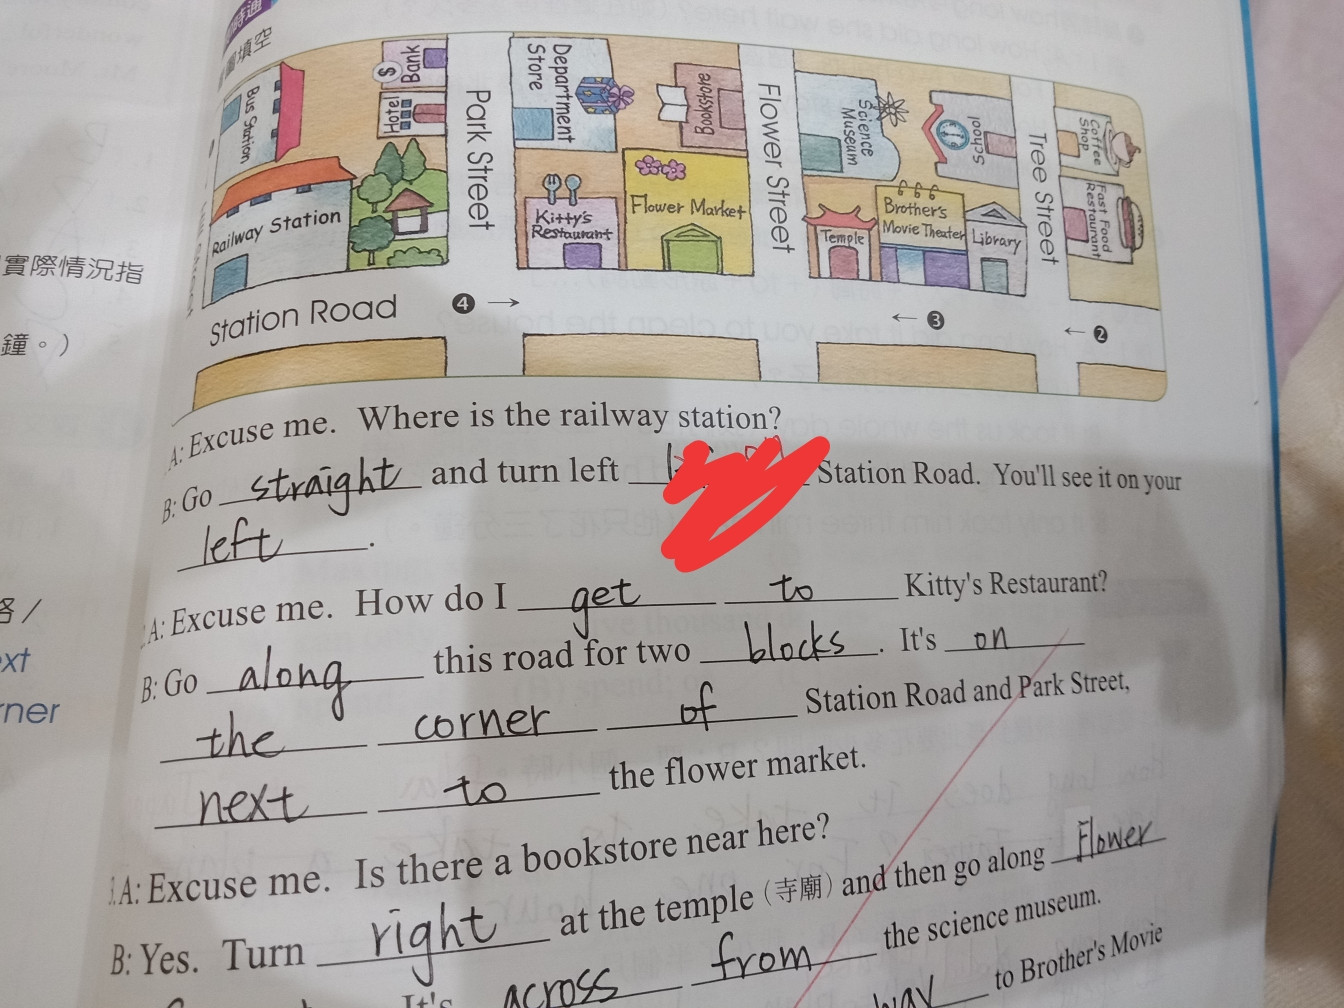 時通
圖填空
Bus Station
Bank
$
Hotel
Railway Station
Park Street
Department Store
Bookstore
Kitty's Restaurant
Flower Market
Flower Street
Science Museum
School
Temple
Brother's Movie Theater
Library
Tree Street
Coffee Shop
Fast Food Restaurant
Station Road
❹ →
← ❸
← ❷
實際情況指
鐘。)
路/
ext
rner
A: Excuse me. Where is the railway station?
B: Go straight and turn left Station Road. You'll see it on your
left.
A: Excuse me. How do I get to Kitty's Restaurant?
B: Go along this road for two blocks. It's on
the corner of Station Road and Park Street,
next to the flower market.
3. A: Excuse me. Is there a bookstore near here?
B: Yes. Turn right at the temple (寺廟) and then go along Flower
It's across from the science museum.
way to Brother's Movie